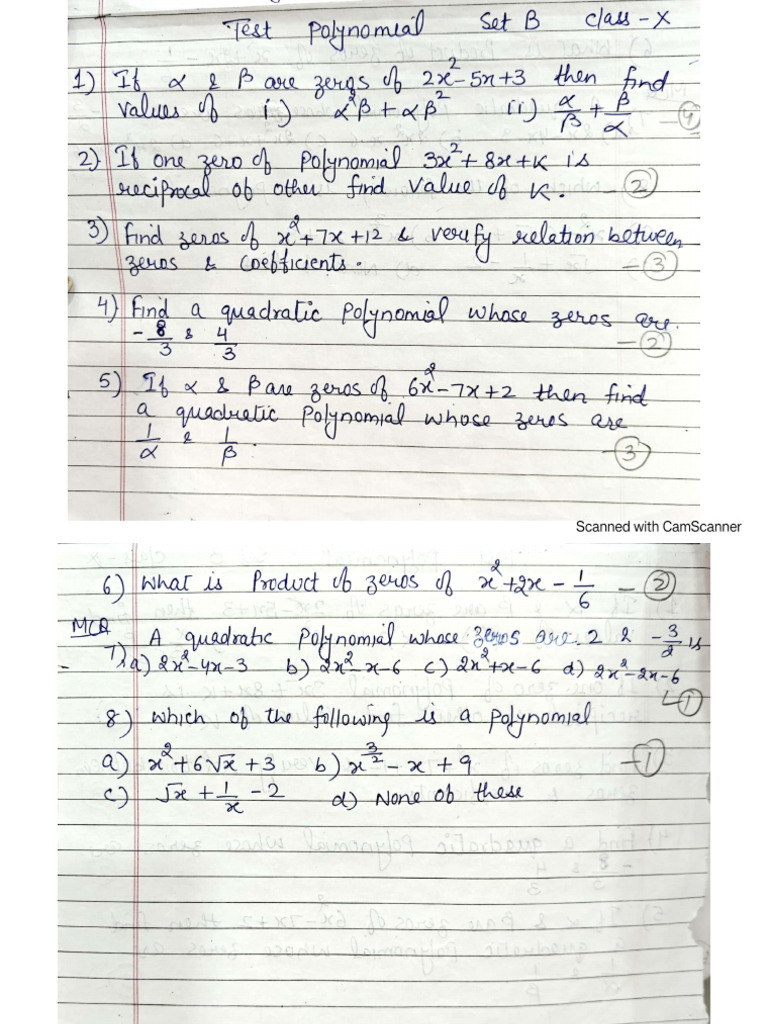 Test Polynomial Set B Class-X
1) If α & β are zeros of 2x²-5x+3 then find
values of i) α²β + αβ² ii) α/β + β/α -④
2) If one zero of Polynomial 3x²+8x+K is
reciprocal of other find value of K. -②
3) Find zeros of x²+7x+12 & verify relation between
zeros & coefficients. -③
4) Find a quadratic Polynomial whose zeros are.
-8/3 & 4/3 -②
5) If α & β are zeros of 6x²-7x+2 then find
a quadratic Polynomial whose zeros are
1/α & 1/β. ③
Scanned with CamScanner
6) What is Product of zeros of x²+2x-1/6 -②
MCQ
7) A quadratic Polynomial whose zeros are 2 & -3/2 is
a) 2x²-4x-3 b) 2x²-x-6 c) 2x²+x-6 d) 2x²-2x-6
①
8) Which of the following is a polynomial
a) x²+6√x+3 b) x^3/2-x+9 -①
c) √x+1/x-2 d) None of these